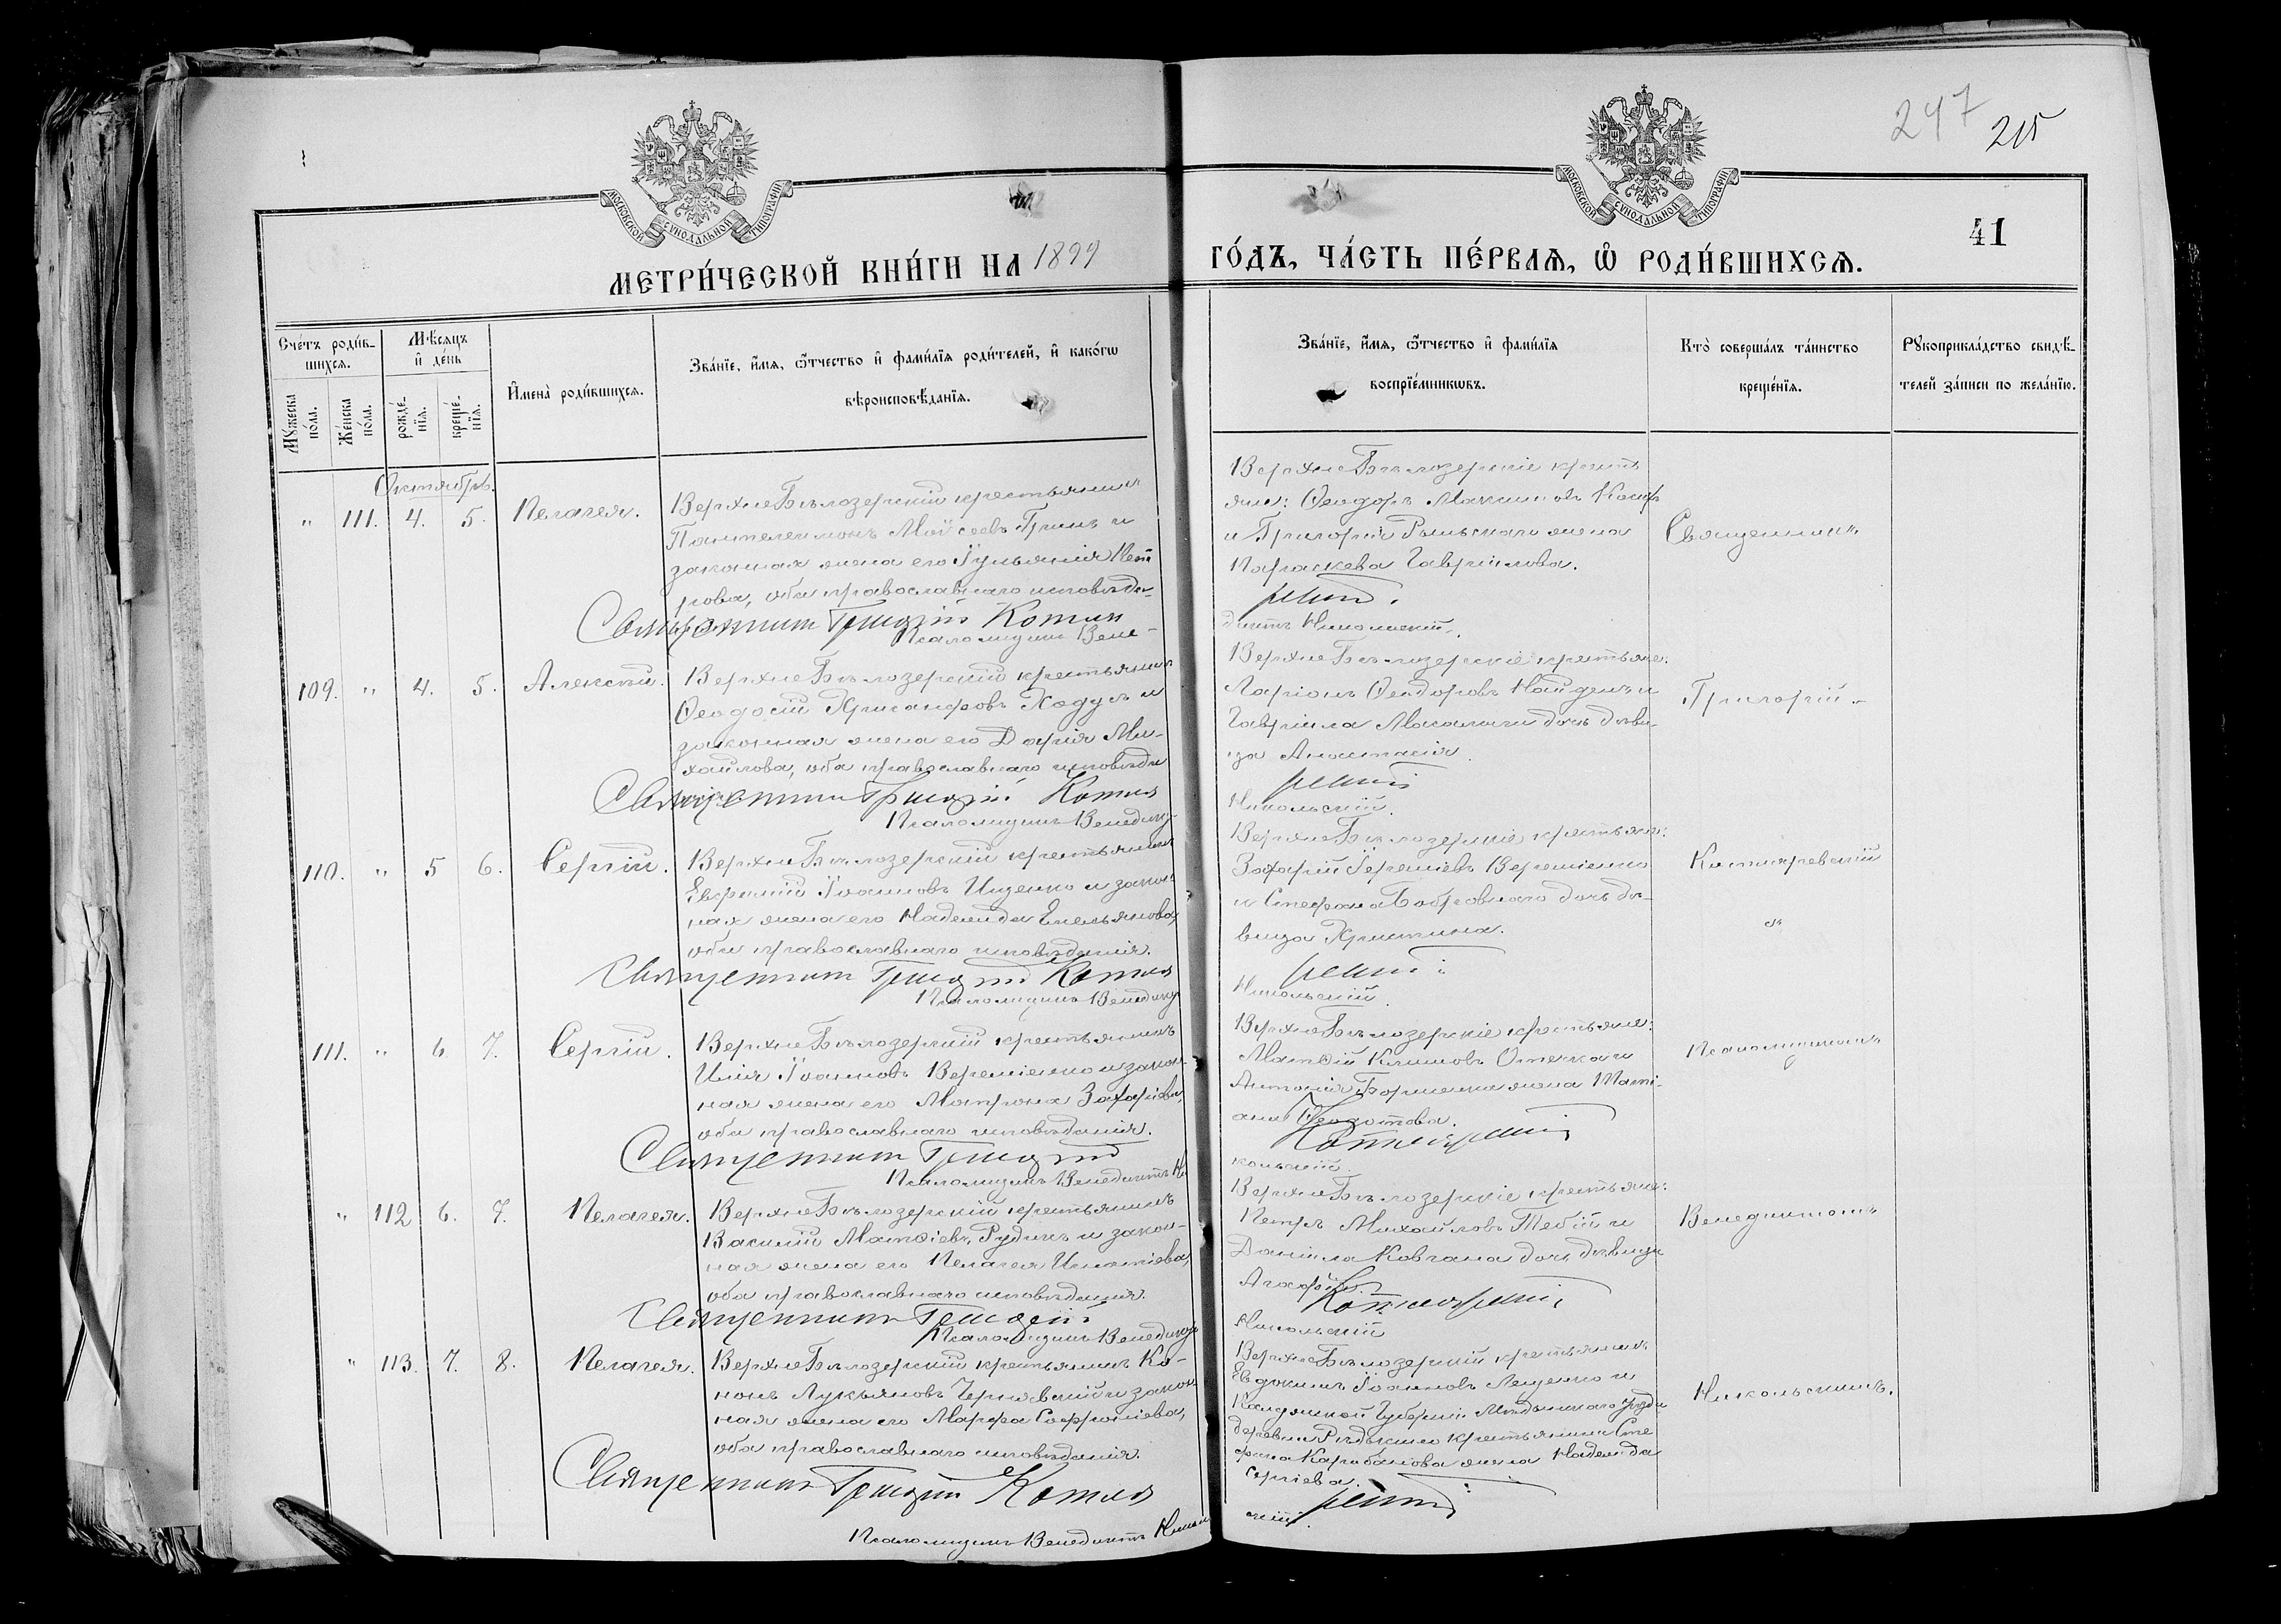 247
215
МОСКОВСКОЙ СѴНОДАЛЬНОЙ ТИПОГРАФІИ
МОСКОВСКОЙ СѴНОДАЛЬНОЙ ТИПОГРАФІИ
41
МЕТРИ́ЧЕСКОЙ КНИ́ГИ НА 1899
ГО́ДЪ, ЧА́СТЬ ПЕ́РВАѦ, Ѡ҆ РОДИ́ВШИХСѦ.
Сче́тъ роди́в-
шихсѧ.
Мꙋ́жеска по́ла.
Же́нска по́ла.
Мѣ́сѧцъ
и҆ де́нь
рожде́-
нїѧ.
креще́-
нїѧ.
И҆мена̀ роди́вшихсѧ.
Зва́нїе, и҆́мѧ, ѻ҆́тчество и҆ фами́лїѧ роди́телей, и҆ како́гѡ
вѣроисповѣ́данїѧ.
Зва́нїе, и҆́мѧ, ѻ҆́тчество и҆ фами́лїѧ
воспрїе́мникѡвъ.
Кто̀ соверша́лъ та́инство
креще́нїѧ.
Рꙋкоприкла́дство свидѣ́-
телей за́писи по жела́нїю.
Октябрь.
" 111. 4. 5. Пелагея.
ВерхнеБѣлозерскій крестьянинъ
Пантелеимонъ Моѵсеевъ Гринь и
законная жена его Іульянія Пет
рова, оба православнаго исповѣда-
Священникъ Григорій Котля
Псаломщикъ Вене-
ВерхнеБѣлозерскіе крестъ
яне: Ѳеодоръ Максимовъ
и Григорія жена
Параскева Гавріилова.
ревскій.
диктъ Никольскій.
Священникъ
109. " 4. 5. Алексѣй.
ВерхнеБѣлозерскій крестьянинъ
Ѳеодосій Хрисанфовъ Ходусъ и
законная жена его Дарія Ми-
хайлова, оба православнаго исповѣда
Священникъ Григорій Котля
Псаломщикъ Венедикт
ВерхнеБѣлозерскіе крестьяне:
Ларіонъ Ѳеодоровъ Найденъ и
Гавріила дочь дѣви-
ца Анастасія.
ревскій
Никольскій.
Григорій
110. " 5 6. Сергій.
ВерхнеБѣлозерскій крестьянинъ
Евфимій Іоанновъ Ищенко и закон
ная жена его Надежда Емельянова,
оба православнаго исповѣданія.
Священникъ Григорій Котля
Псаломщикъ Венедикт
ВерхнеБѣлозерскіе крестьяне:
Захарій Іереміевъ Вереміенко
и Стефана Бобровнаго дочь дѣ-
вица Христина.
ревскій
Никольскій.
Котляревскій
съ
111. " 6. 7. Сергій.
ВерхнеБѣлозерскій крестьянинъ
Илія Іоанновъ Вереміенко и закон
ная жена его Матрона Захаріева,
оба православнаго исповѣданія.
Священникъ Григорій
Псаломщикъ Венедиктъ Ни
ВерхнеБѣлозерскіе крестьяне:
Матѳій Климовъ и
Антонія жена Тати-
ана Ѳеодотова.
Котляревскій
кольскій.
Псаломщикомъ
" 112 6. 7. Пелагея.
ВерхнеБѣлозерскій крестьянинъ
Василій Матѳіевъ Рудикъ и закон-
ная жена его Пелагея Игнатіева,
оба православнаго исповѣданія.
Священникъ Григорій
Псаломщикъ Венедиктъ
ВерхнеБѣлозерскіе крестьяне:
Петръ Михайловъ и
Даніила Ковгана дочь дѣвица
Агафія.
Котляревскій
Никольскій
Венедиктомъ
" 113. 7. 8. Пелагея.
ВерхнеБѣлозерскій крестьянинъ Ко-
нонъ Лукьяновъ Чернявскій и закон
ная жена его Марфа Софроніева,
оба православнаго исповѣданія.
Священникъ Григорій Котля
Псаломщикъ Венедиктъ Николь
ВерхнеБѣлозерскій крестьянинъ
Евдокимъ Іоанновъ Лещенко и
Калужской Губерніи Мядынскаго уѣзда
деревни крестьянина Сте
фана Карабанова жена Надежда
Сергіева.
ревскій
скій.
Никольскимъ.